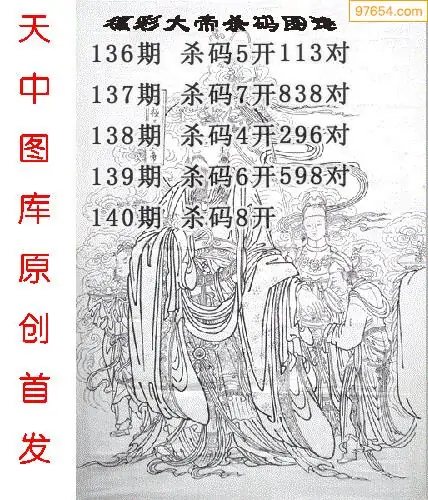 97654.com
福彩大帝杀码图谜
136期 杀码5开113对
137期 杀码7开838对
138期 杀码4开296对
139期 杀码6开598对
140期 杀码8开
天中图库原创首发